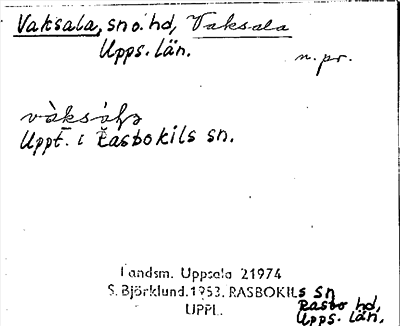 Vaksala, sn o. hd, Vaksala
Upps. län.
n. pr.
Uppt. i Rasbokils sn.
Landsm. Uppsala 21974
S. Björklund. 1953. RASBOKILs sn
UPPL.
Rasbo hd,
Upps. län.